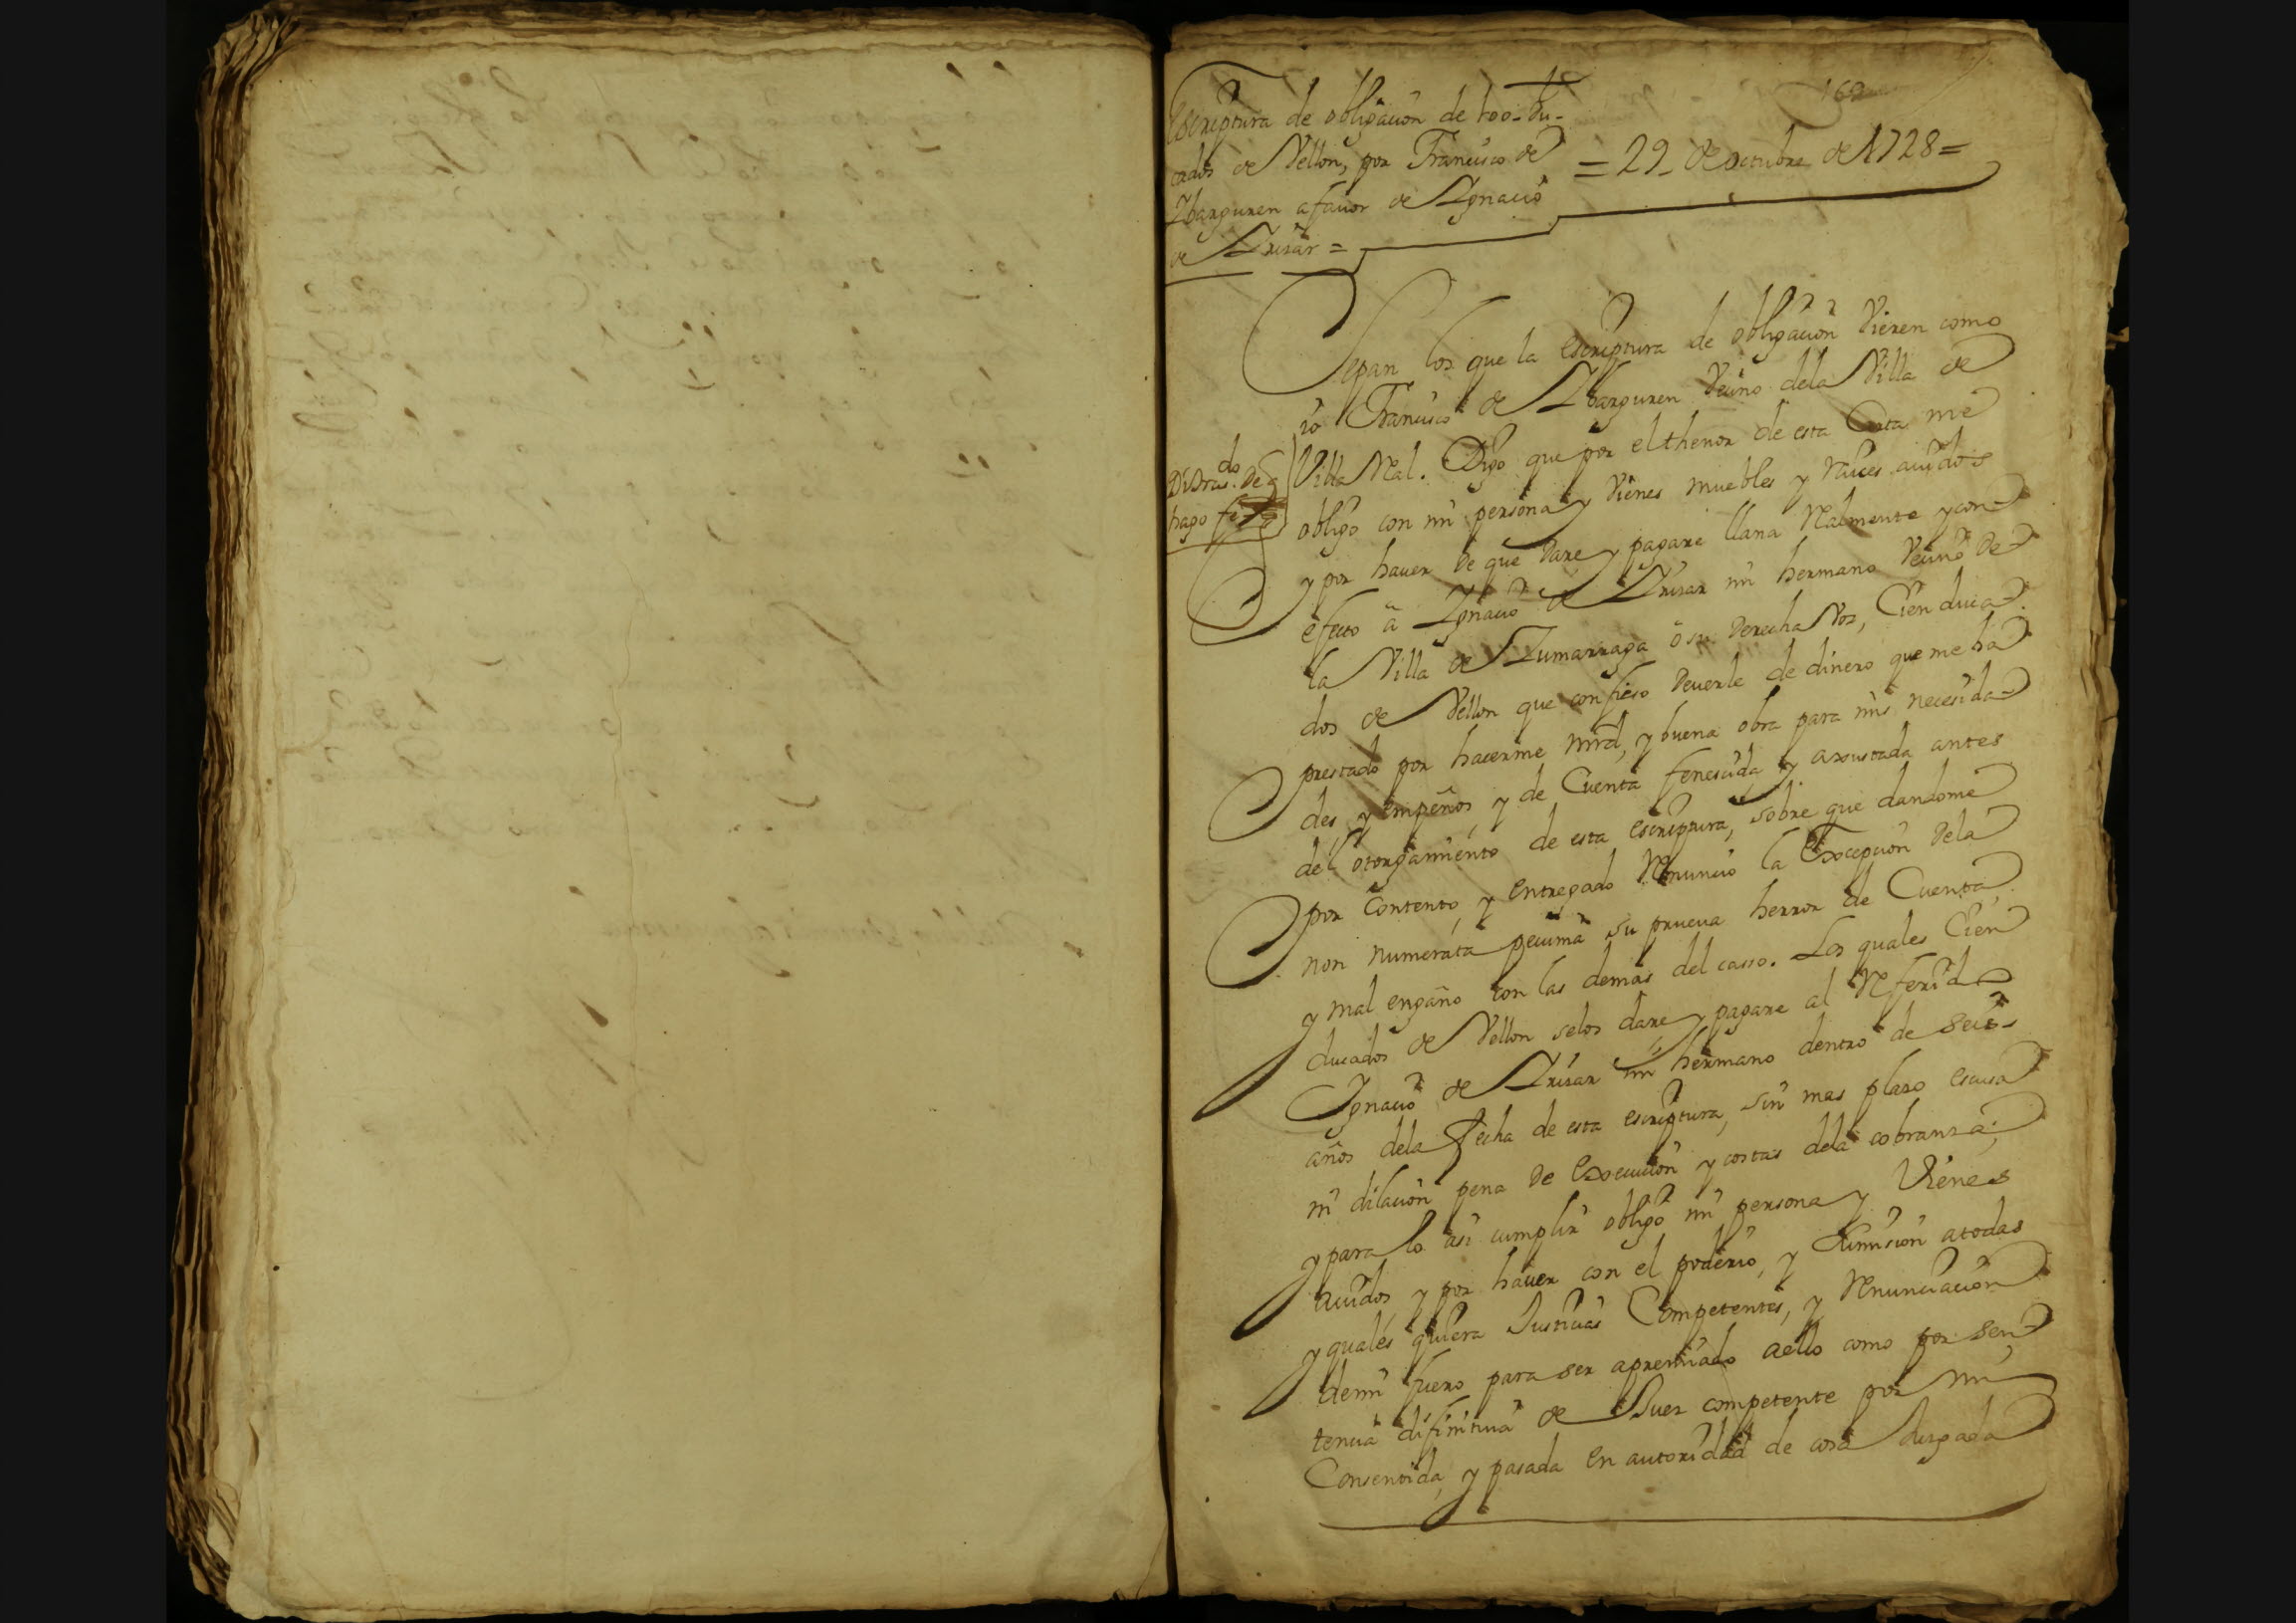 162
Escriptura de obligacion de 100 - Du-
cados de Vellon, por Francisco de
Ybarguren a fauor de Ygnacio
de Yrizar =
= 29 - de octubre de 1728 =
Sepan los que la escriptura de obligacion Vieren como
io Francisco de Ybarguren Vecino dela Villa de
Villa Real. Digo que por el thenor de esta Carta me
obligo con mi persona y Vienes muebles y raices auidos
y por hauer de que Dare y pagare llana Realmente y con
efecto a Ygnacio de Yrizar mi hermano Vecino de
la Villa de Zumarraga o su Derecho Voz, Cien duca
dos de Vellon que confieso Deuerle de dinero que me ha
prestado por hacerme mrd, y buena obra para mis necesida
des, y empeños, y de Cuenta fenescida, y axustada antes
del otorgamiento de esta escriptura, sobre que dandome
por Contento, y entregado Renuncio la Excepcion Dela
non numerata pecunia su prueua herror de Cuenta
y mal engaño con las demas del casso. Los quales Cien
ducados de Vellon selos dare y pagare al Referido
Ygnacio de Yrizar mi hermano dentro de seis
años dela Fecha de esta escriptura, sin mas plazo escusa
ni dilacion pena De Execucion y costas dela cobranza,
y para lo asi cumplir obligo mi persona y Vienes
auidos, y por hauer con el poderio, y sumision a todas
y quales quiera Justicias Competentes, y Renunciacion
demi fuero para ser apremiado aello como por sen
tencia difinitiua de Juez competente por mi
Consentida, y pasada en autoridad de cosa Juzgada
do
hago fe